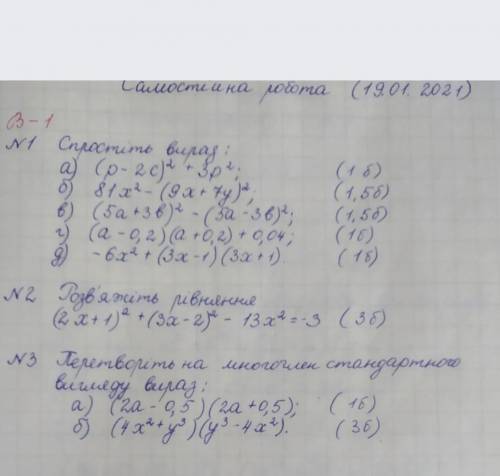 Самостійна робота (19.01.2021)
В-1
№1 Спростіть вираз:
а) (p-2c)² + 3p²; (1б)
б) 81x² - (9x+7y)²; (1,5б)
в) (5a+3b)² - (5a-3b)²; (1,5б)
г) (a-0,2)(a+0,2)+0,04; (1б)
д) -6x² + (3x-1)(3x+1). (1б)
№2 Розв'яжіть рівняння
(2x+1)² + (3x-2)² - 13x² = -3 (3б)
№3 Перетворіть на многочлен стандартного
вигляду вираз:
а) (2a-0,5)(2a+0,5); (1б)
б) (4x²+y³)(y³-4x²). (3б)